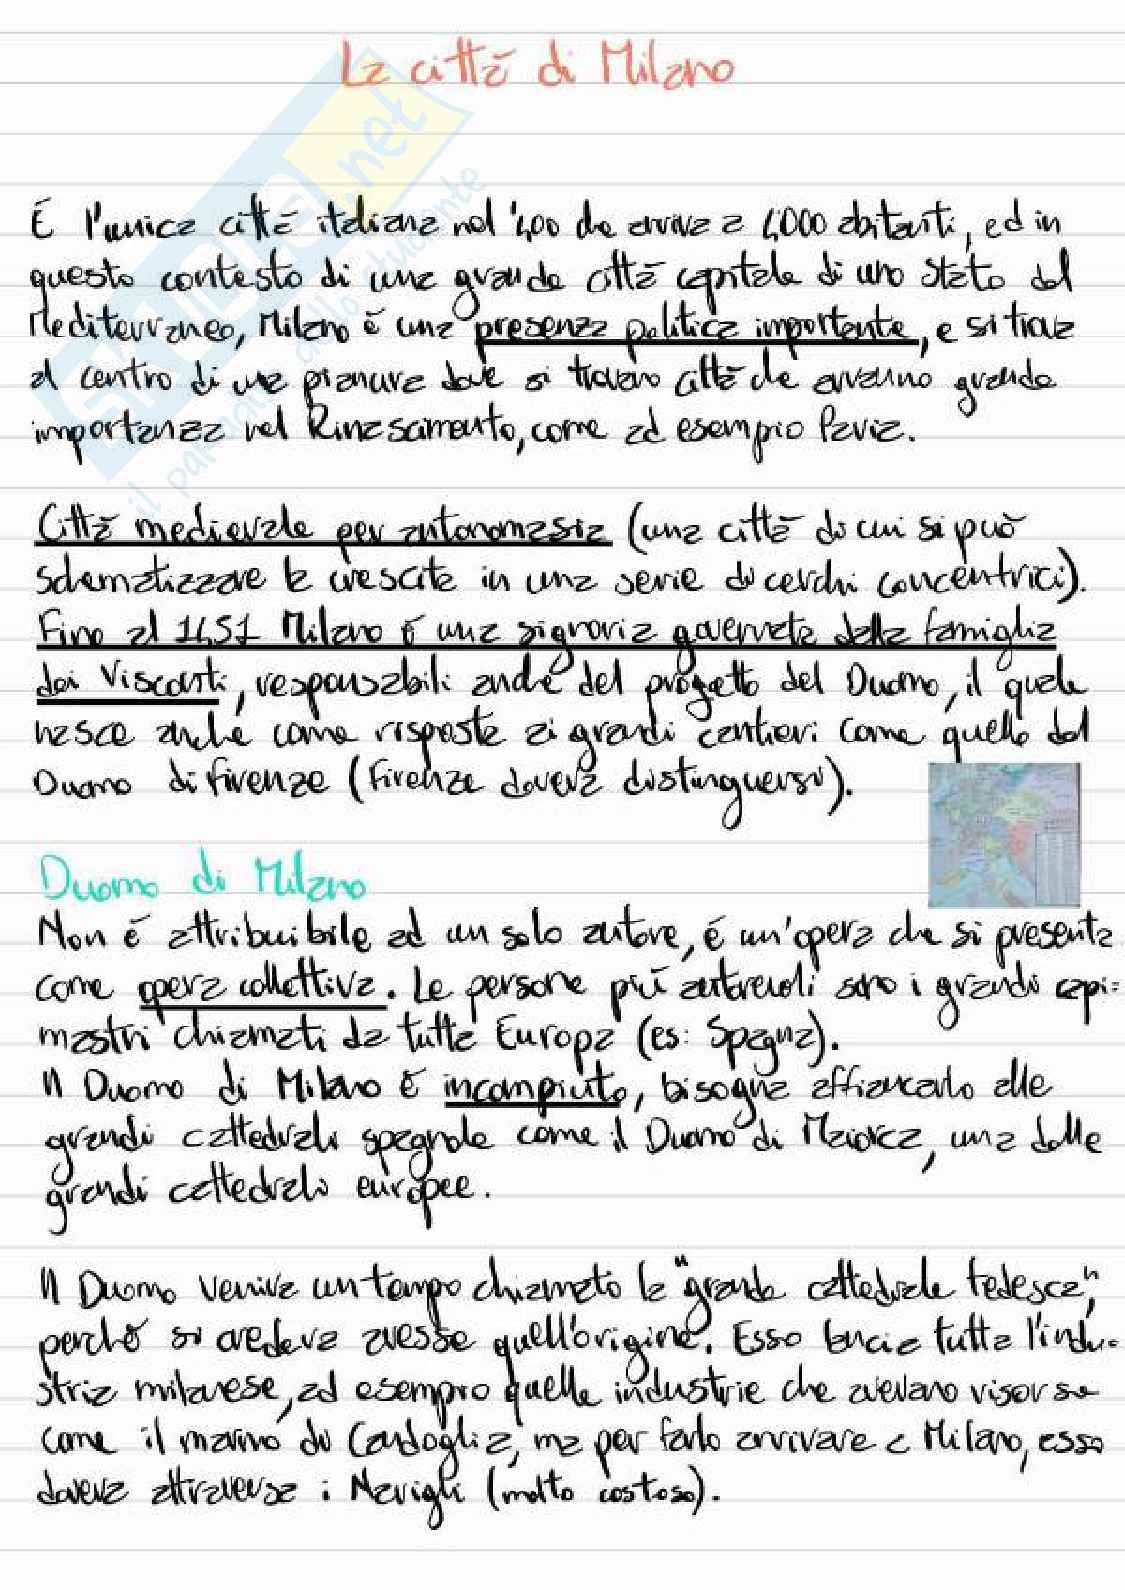 La città di Milano
È l'unica città italiana nel '400 che arriva a 4000 abitanti, ed in
questo contesto di una grande città capitale di uno Stato del
Mediterraneo, Milano è una presenza politica importante, e si trova
al centro di una pianura dove si trovano città che avranno grande
importanza nel Rinascimento, come ad esempio Pavia.
Città medievale per antonomasia (una città di cui si può
schematizzare la crescita in una serie di cerchi concentrici).
Fino al 1451 Milano è una signoria governata dalla famiglia
dei Visconti, responsabili anche del progetto del Duomo, il quale
nasce anche come risposta ai grandi cantieri come quello del
Duomo di Firenze (Firenze doveva distinguersi).
Duomo di Milano
Non è attribuibile ad un solo autore, è un'opera che si presenta
come opera collettiva. Le persone più autorevoli sono i grandi capi=
mastri chiamati da tutta Europa (es: Spagna).
Il Duomo di Milano è incompiuto, bisogna affiancarlo alle
grandi cattedrali spagnole come il Duomo di Maiorca, una delle
grandi cattedrali europee.
Il Duomo veniva un tempo chiamato la "grande cattedrale tedesca",
perché si credeva avesse quell'origine. Esso lancia tutta l'indu-
stria milanese, ad esempio quelle industrie che avevano risorse
come il marmo di Candoglia, ma per farlo arrivare a Milano, esso
doveva attraversa i Navigli (molto costoso).
SKUOLA.net
il paradiso dello studente